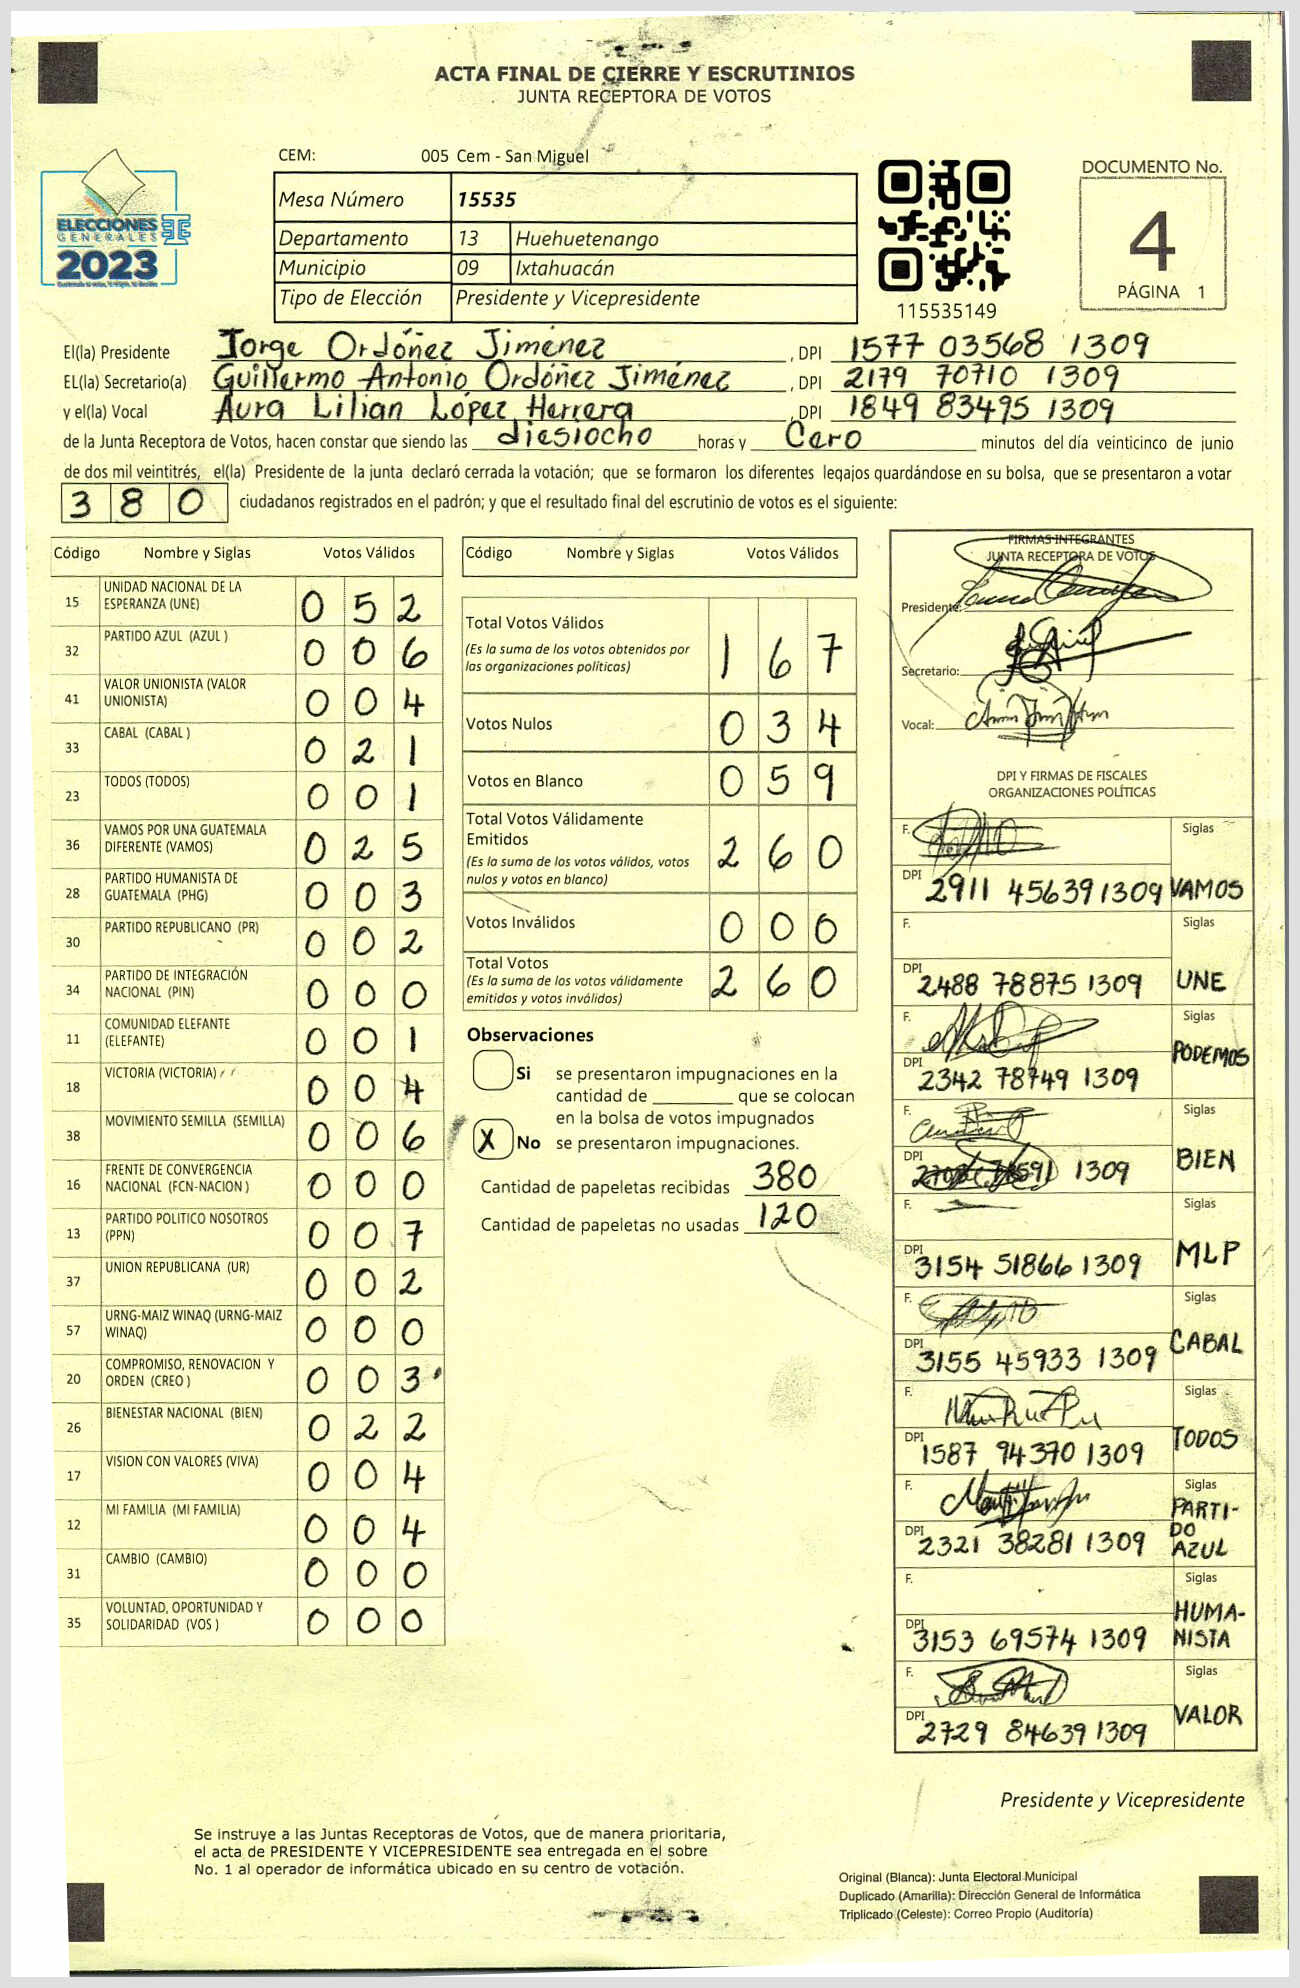 ACTA FINAL DE CIERRE Y ESCRUTINIOS
JUNTA RECEPTORA DE VOTOS
CEM: 005 Cem - San Miguel
DOCUMENTO No.
4
PÁGINA 1
ELECCIONES
GENERALES
2023
Mesa Número 15535
Departamento 13 Huehuetenango
Municipio 09 Ixtahuacán
Tipo de Elección Presidente y Vicepresidente
115535149
El(la) Presidente Jorge Ordóñez Jiménez , DPI 1577 03568 1309
EL(la) Secretario(a) Guillermo Antonio Ordóñez Jiménez , DPI 2179 70710 1309
y el(la) Vocal Aura Lilian López Herrera , DPI 1849 83495 1309
de la Junta Receptora de Votos, hacen constar que siendo las diesiocho horas y Cero minutos del día veinticinco de junio
de dos mil veintitrés, el(la) Presidente de la junta declaró cerrada la votación; que se formaron los diferentes legajos guardándose en su bolsa, que se presentaron a votar
380 ciudadanos registrados en el padrón; y que el resultado final del escrutinio de votos es el siguiente:
Código Nombre y Siglas Votos Válidos
15 UNIDAD NACIONAL DE LA ESPERANZA (UNE) 0 5 2
32 PARTIDO AZUL (AZUL ) 0 0 6
41 VALOR UNIONISTA (VALOR UNIONISTA) 0 0 4
33 CABAL (CABAL ) 0 2 1
23 TODOS (TODOS) 0 0 1
36 VAMOS POR UNA GUATEMALA DIFERENTE (VAMOS) 0 2 5
28 PARTIDO HUMANISTA DE GUATEMALA (PHG) 0 0 3
30 PARTIDO REPUBLICANO (PR) 0 0 2
34 PARTIDO DE INTEGRACIÓN NACIONAL (PIN) 0 0 0
11 COMUNIDAD ELEFANTE (ELEFANTE) 0 0 1
18 VICTORIA (VICTORIA) 0 0 4
38 MOVIMIENTO SEMILLA (SEMILLA) 0 0 6
16 FRENTE DE CONVERGENCIA NACIONAL (FCN-NACION ) 0 0 0
13 PARTIDO POLITICO NOSOTROS (PPN) 0 0 7
37 UNION REPUBLICANA (UR) 0 0 2
57 URNG-MAIZ WINAQ (URNG-MAIZ WINAQ) 0 0 0
20 COMPROMISO, RENOVACION Y ORDEN (CREO ) 0 0 3
26 BIENESTAR NACIONAL (BIEN) 0 2 2
17 VISION CON VALORES (VIVA) 0 0 4
12 MI FAMILIA (MI FAMILIA) 0 0 4
31 CAMBIO (CAMBIO) 0 0 0
35 VOLUNTAD, OPORTUNIDAD Y SOLIDARIDAD (VOS ) 0 0 0
Código Nombre y Siglas Votos Válidos
Total Votos Válidos 1 6 7
(Es la suma de los votos obtenidos por
las organizaciones políticas)
Votos Nulos 0 3 4
Votos en Blanco 0 5 9
Total Votos Válidamente
Emitidos 2 6 0
(Es la suma de los votos válidos, votos
nulos y votos en blanco)
Votos Inválidos 0 0 0
Total Votos 2 6 0
(Es la suma de los votos válidamente
emitidos y votos inválidos)
Observaciones
Si se presentaron impugnaciones en la
cantidad de ________ que se colocan
en la bolsa de votos impugnados
X No se presentaron impugnaciones.
Cantidad de papeletas recibidas 380
Cantidad de papeletas no usadas 120
FIRMAS INTEGRANTES
JUNTA RECEPTORA DE VOTOS
Presidente:
Secretario:
Vocal:
DPI Y FIRMAS DE FISCALES
ORGANIZACIONES POLÍTICAS
F. Siglas
DPI 2911 45639 1309 VAMOS
F. Siglas
DPI 2488 78875 1309 UNE
F. Siglas
DPI 2342 78749 1309 PODEMOS
F. Siglas
DPI 1309 BIEN
F. Siglas
DPI 3154 51866 1309 MLP
F. Siglas
DPI 3155 45933 1309 CABAL
F. Siglas
DPI 1587 94370 1309 TODOS
F. Siglas
DPI 2321 38281 1309 PARTI-
DO
AZUL
F. Siglas
DPI 3153 69574 1309 HUMA-
NISTA
F. Siglas
DPI 2729 84639 1309 VALOR
Presidente y Vicepresidente
Se instruye a las Juntas Receptoras de Votos, que de manera prioritaria,
el acta de PRESIDENTE Y VICEPRESIDENTE sea entregada en el sobre
No. 1 al operador de informática ubicado en su centro de votación.
Original (Blanca): Junta Electoral Municipal
Duplicado (Amarilla): Dirección General de Informática
Triplicado (Celeste): Correo Propio (Auditoría)